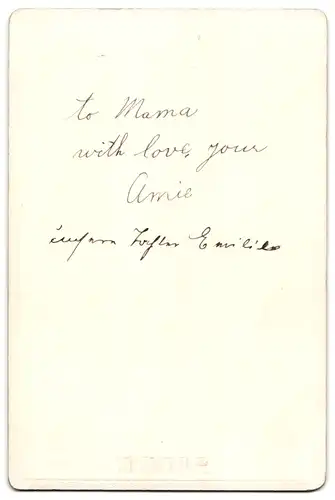 to Mama
with love, your
Amie
unsere Tochter Emilie